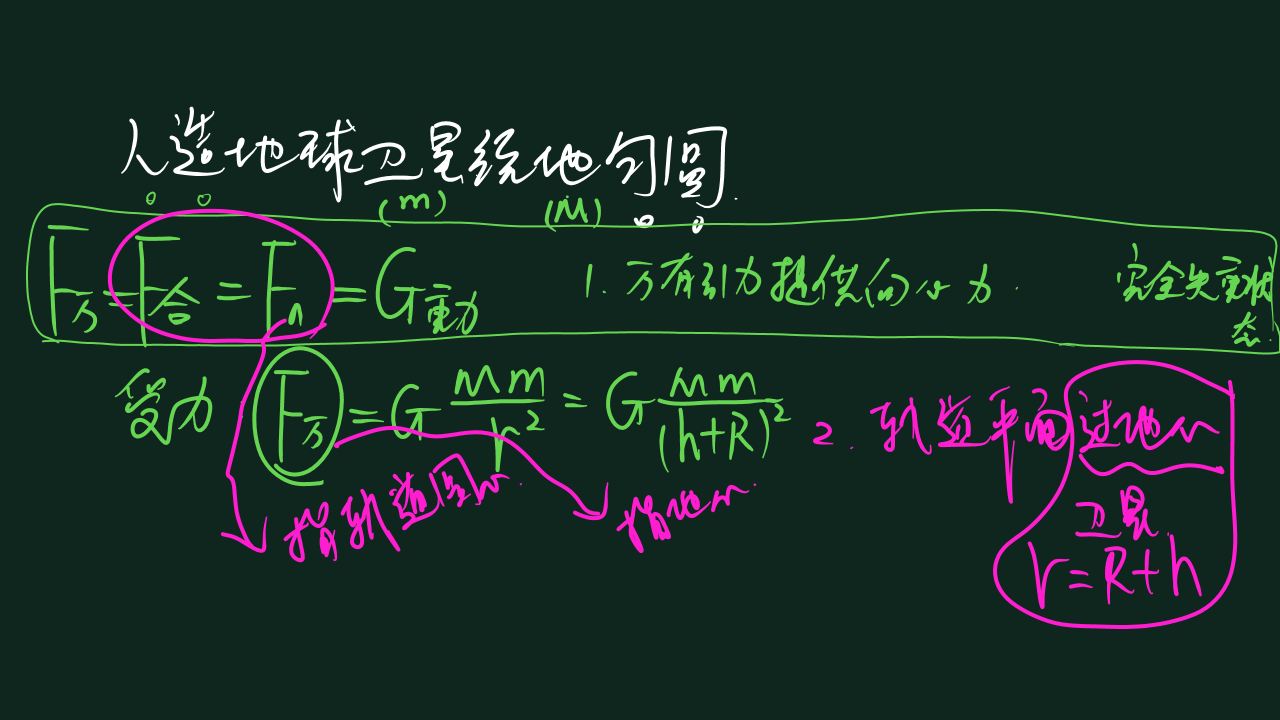 人造地球卫星绕地匀圆.
(m) (M)
F万=F合=Fn=G重动 1.万有引力提供向心力. 完全失重状态.
受力 F万=G Mm/r²=G Mm/(h+R)² 2.轨道平面过地心
指轨道圆心. 指地心. 卫星.
r=R+h